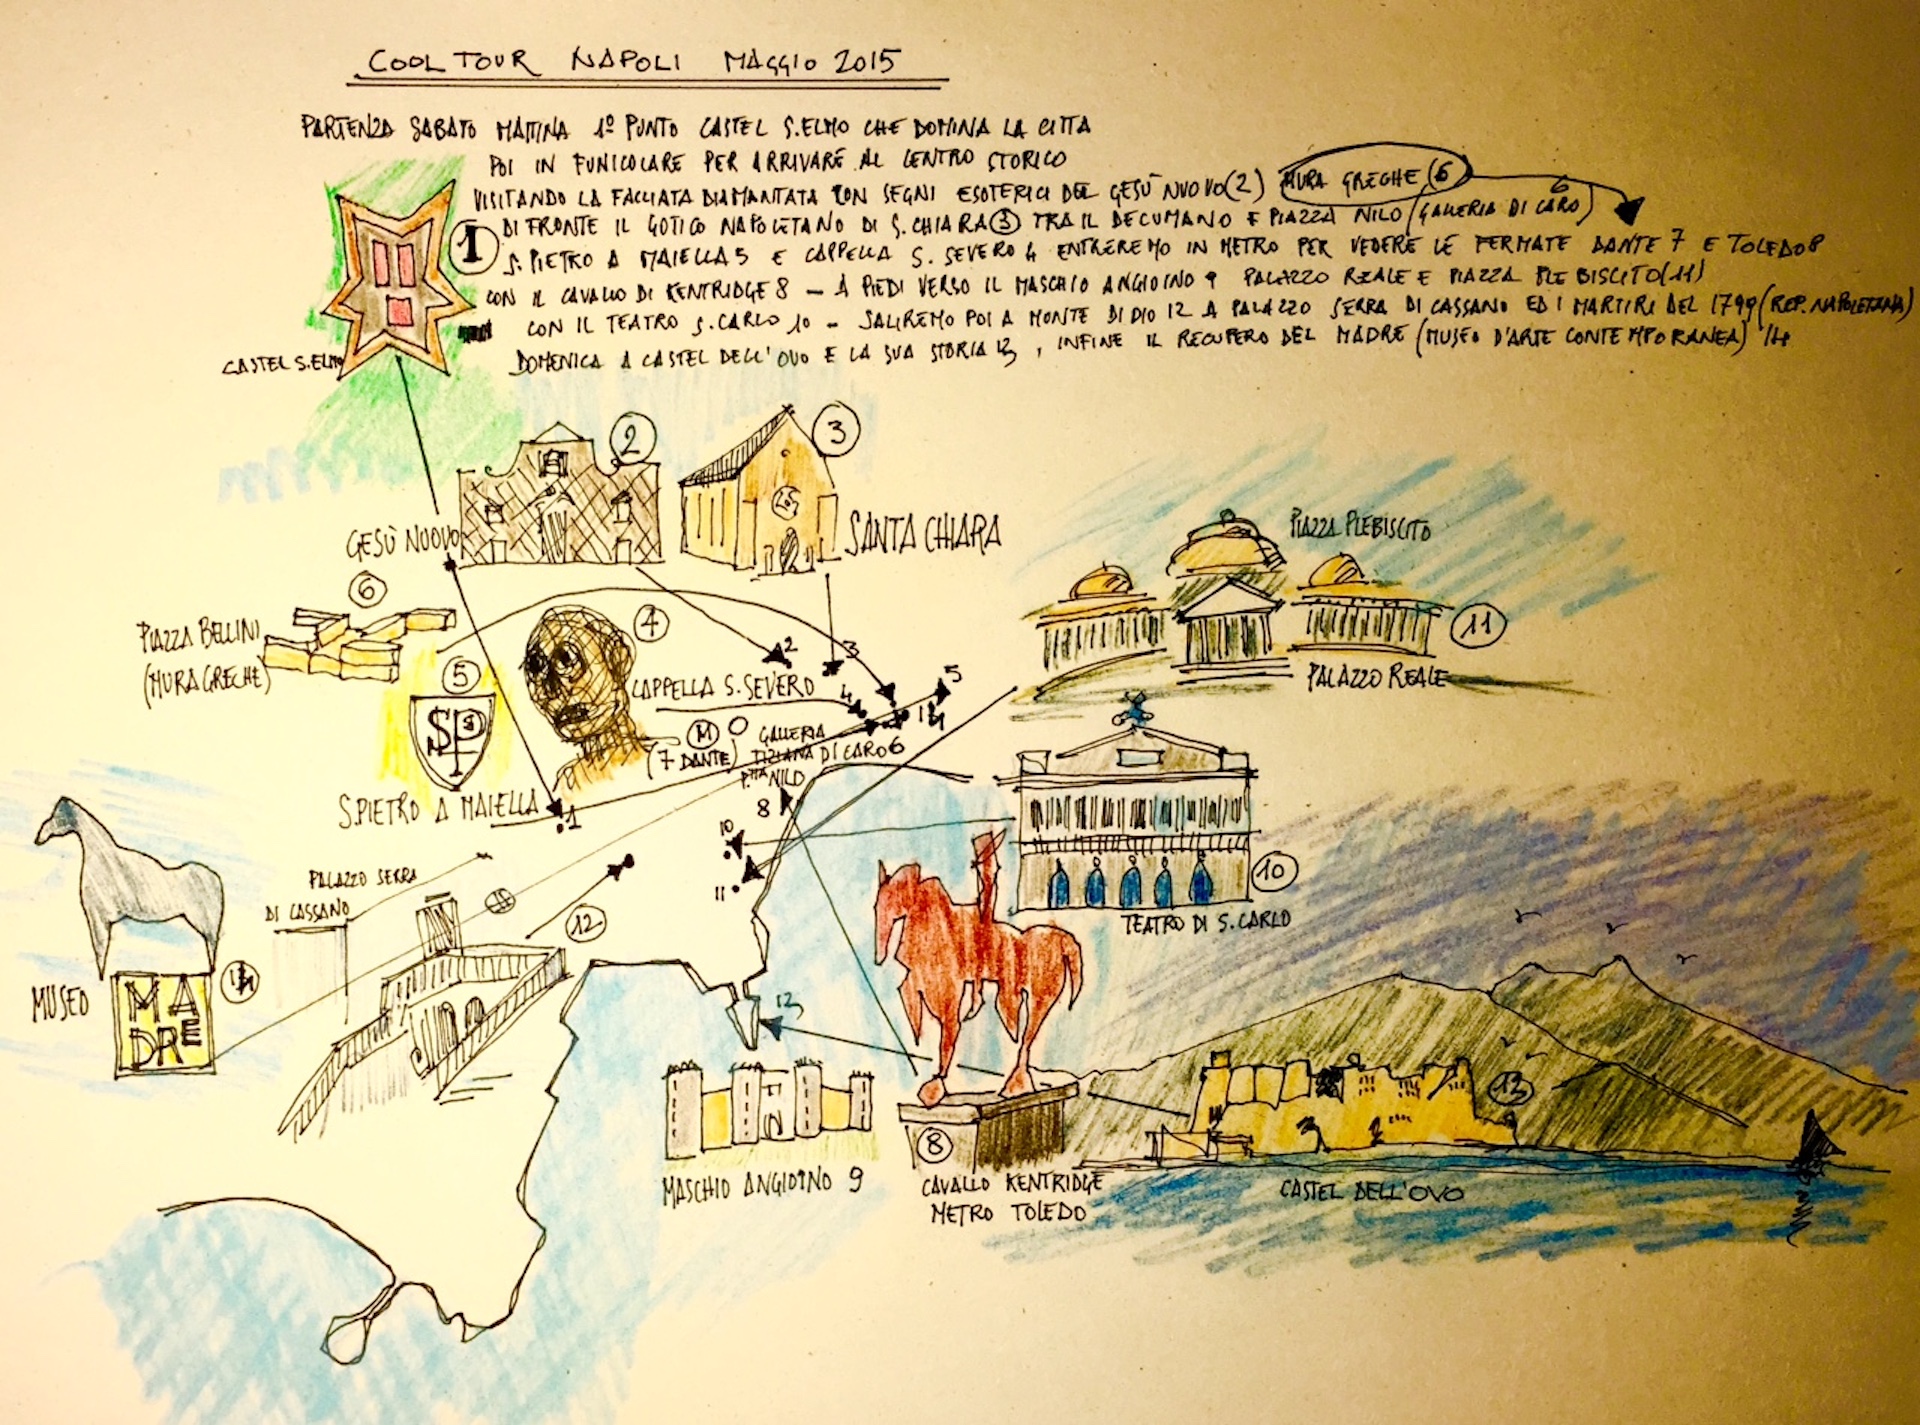 COOL TOUR NAPOLI MAGGIO 2015
PARTENZA SABATO MATTINA 1º PUNTO CASTEL S.ELMO CHE DOMINA LA CITTA
POI IN FUNICOLARE PER ARRIVARE AL CENTRO STORICO
VISITANDO LA FACCIATA DIAMANTATA CON SEGNI ESOTERICI DEL GESÙ NUOVO (2) MURA GRECHE (6
DI FRONTE IL GOTICO NAPOLETANO DI S. CHIARA 3 TRA IL DECUMANO E PIAZZA NILO (GALLERIA DI CARO) 6
S. PIETRO A MAIELLA 5 E CAPPELLA S. SEVERO 4 ENTREREMO IN METRO PER VEDERE LE FERMATE DANTE 7 E TOLEDO 8
CON IL CAVALLO DI KENTRIDGE 8 – A PIEDI VERSO IL MASCHIO ANGIOINO 9 PALAZZO REALE E PIAZZA PLEBISCITO (11)
CON IL TEATRO S. CARLO 10 – SALIREMO POI A MONTE DI DIO 12 A PALAZZO SERRA DI CASSANO ED I MARTIRI DEL 1799 (REP. NAPOLETANA)
DOMENICA A CASTEL DELL'OVO E LA SUA STORIA 13, INFINE IL RECUPERO DEL MADRE (MUSEO D'ARTE CONTEMPORANEA) 14
1
CASTEL S.ELMO
2
GESÙ NUOVO
3
SANTA CHIARA
6
PIAZZA BELLINI
(MURA GRECHE)
4
CAPPELLA S. SEVERO
5
SP
S. PIETRO A MAIELLA
M
(7 DANTE)
GALLERIA
TIZIANA DI CARO 6
P.ZZA NILO
2
3
4
5
14
1
8
10
11
13
PIAZZA PLEBISCITO
11
PALAZZO REALE
10
TEATRO DI S. CARLO
MUSEO
MA
DRE
14
PALAZZO SERRA
DI CASSANO
12
MASCHIO ANGIOINO 9
8
CAVALLO KENTRIDGE
METRO TOLEDO
13
CASTEL DELL'OVO